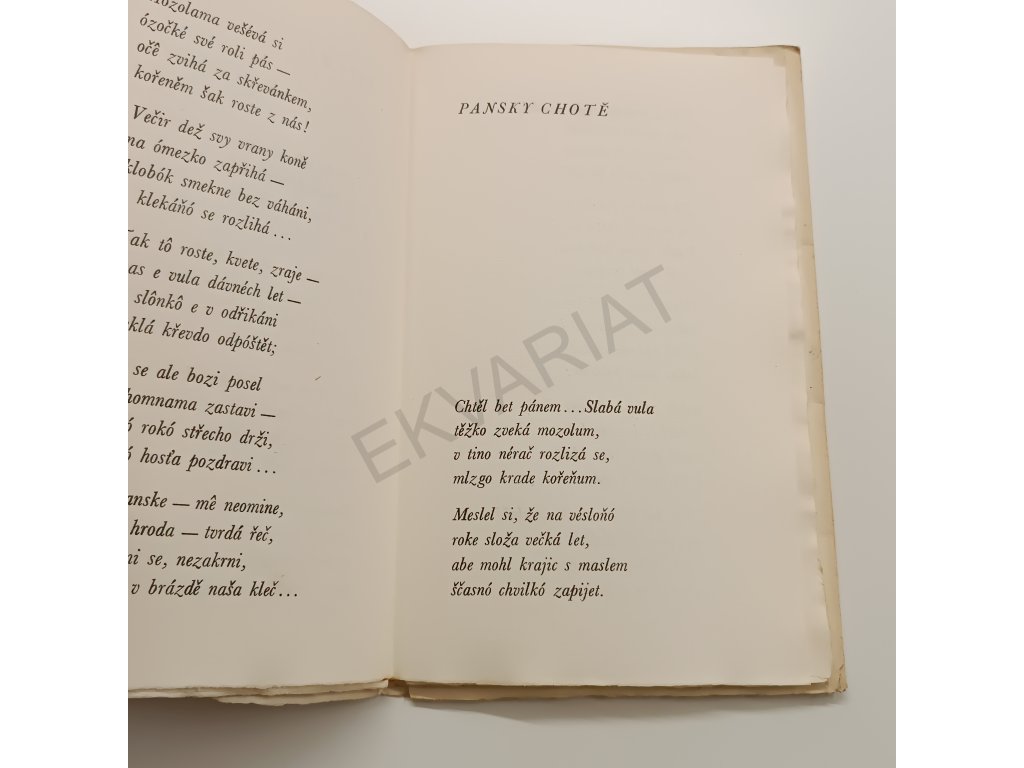 Mozolama vešévá si
ózočké své roli pás —
očê zvihá za skřevánkem,
kořeněm šak roste z nás!
Večir dež svy vrany koně
na ómezko zapřihá —
klobók smekne bez váháni,
klekáňó se rozlihá ...
Tak tô roste, kvete, zraje —
as e vula dávnéch let —
slônkô e v odřikáni
eklá křevdo odpóštět;
se ale bozi posel
homnama zastavi —
ó rokó střecho drži,
ó hosťa pozdravi ...
anske — mê neomine,
hroda — tvrdá řeč,
ni se, nezakrni,
v brázdě naša kleč ...
PANSKY CHOTĚ
Chtěl bet pánem ... Slabá vula
těžko zveká mozolum,
v tino nérač rozlizá se,
mlzgo krade kořeňum.
Meslel si, že na vésloňó
roke složa večká let,
abe mohl krajic s maslem
ščasnó chvilkó zapijet.
EKVARIAT